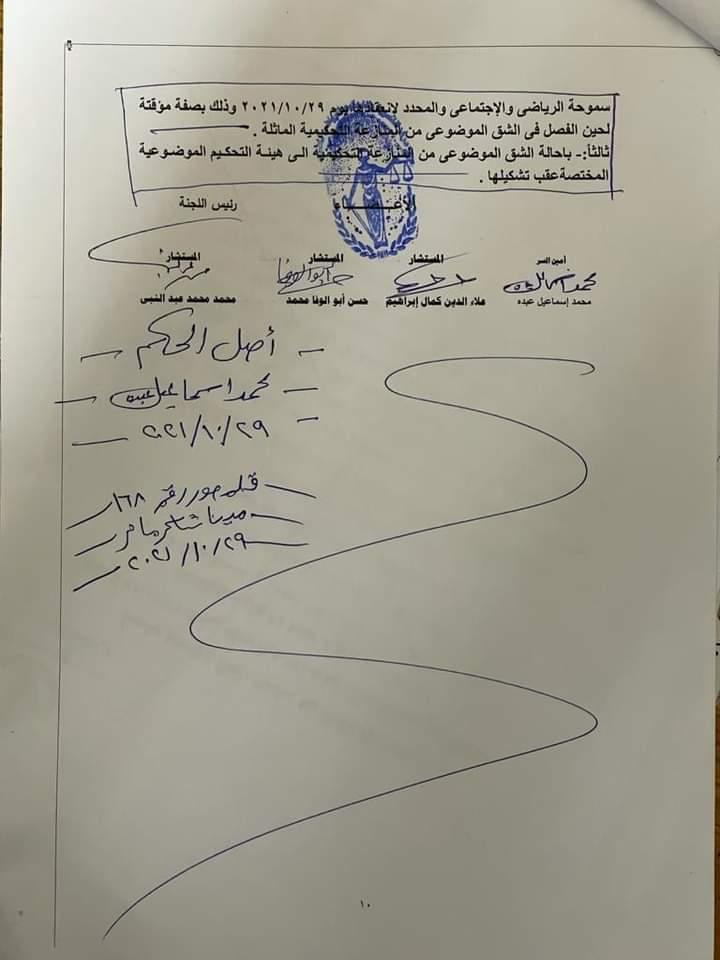 سموحة الرياضى والإجتماعى والمحدد لانعقادها يوم ٢٠٢١/١٠/٢٩ وذلك بصفة مؤقتة
لحين الفصل فى الشق الموضوعى من المنازعة التحكيمية الماثلة .
ثالثاً:- باحالة الشق الموضوعى من المنازعة التحكيمية الى هيئة التحكيم الموضوعية
المختصة عقب تشكيلها .
الأعضاء رئيس اللجنة
أمين السر المستشار المستشار المستشار
محمد إسماعيل عبده علاء الدين كمال إبراهيم حسن أبو الوفا محمد محمد محمد عبد النبى
أصل الحكم
محمد اسماعيل عبده
٢٠٢١/١٠/٢٩
صور رقم ١٦٨
٢٠٢١/١٠/٢٩
١٠